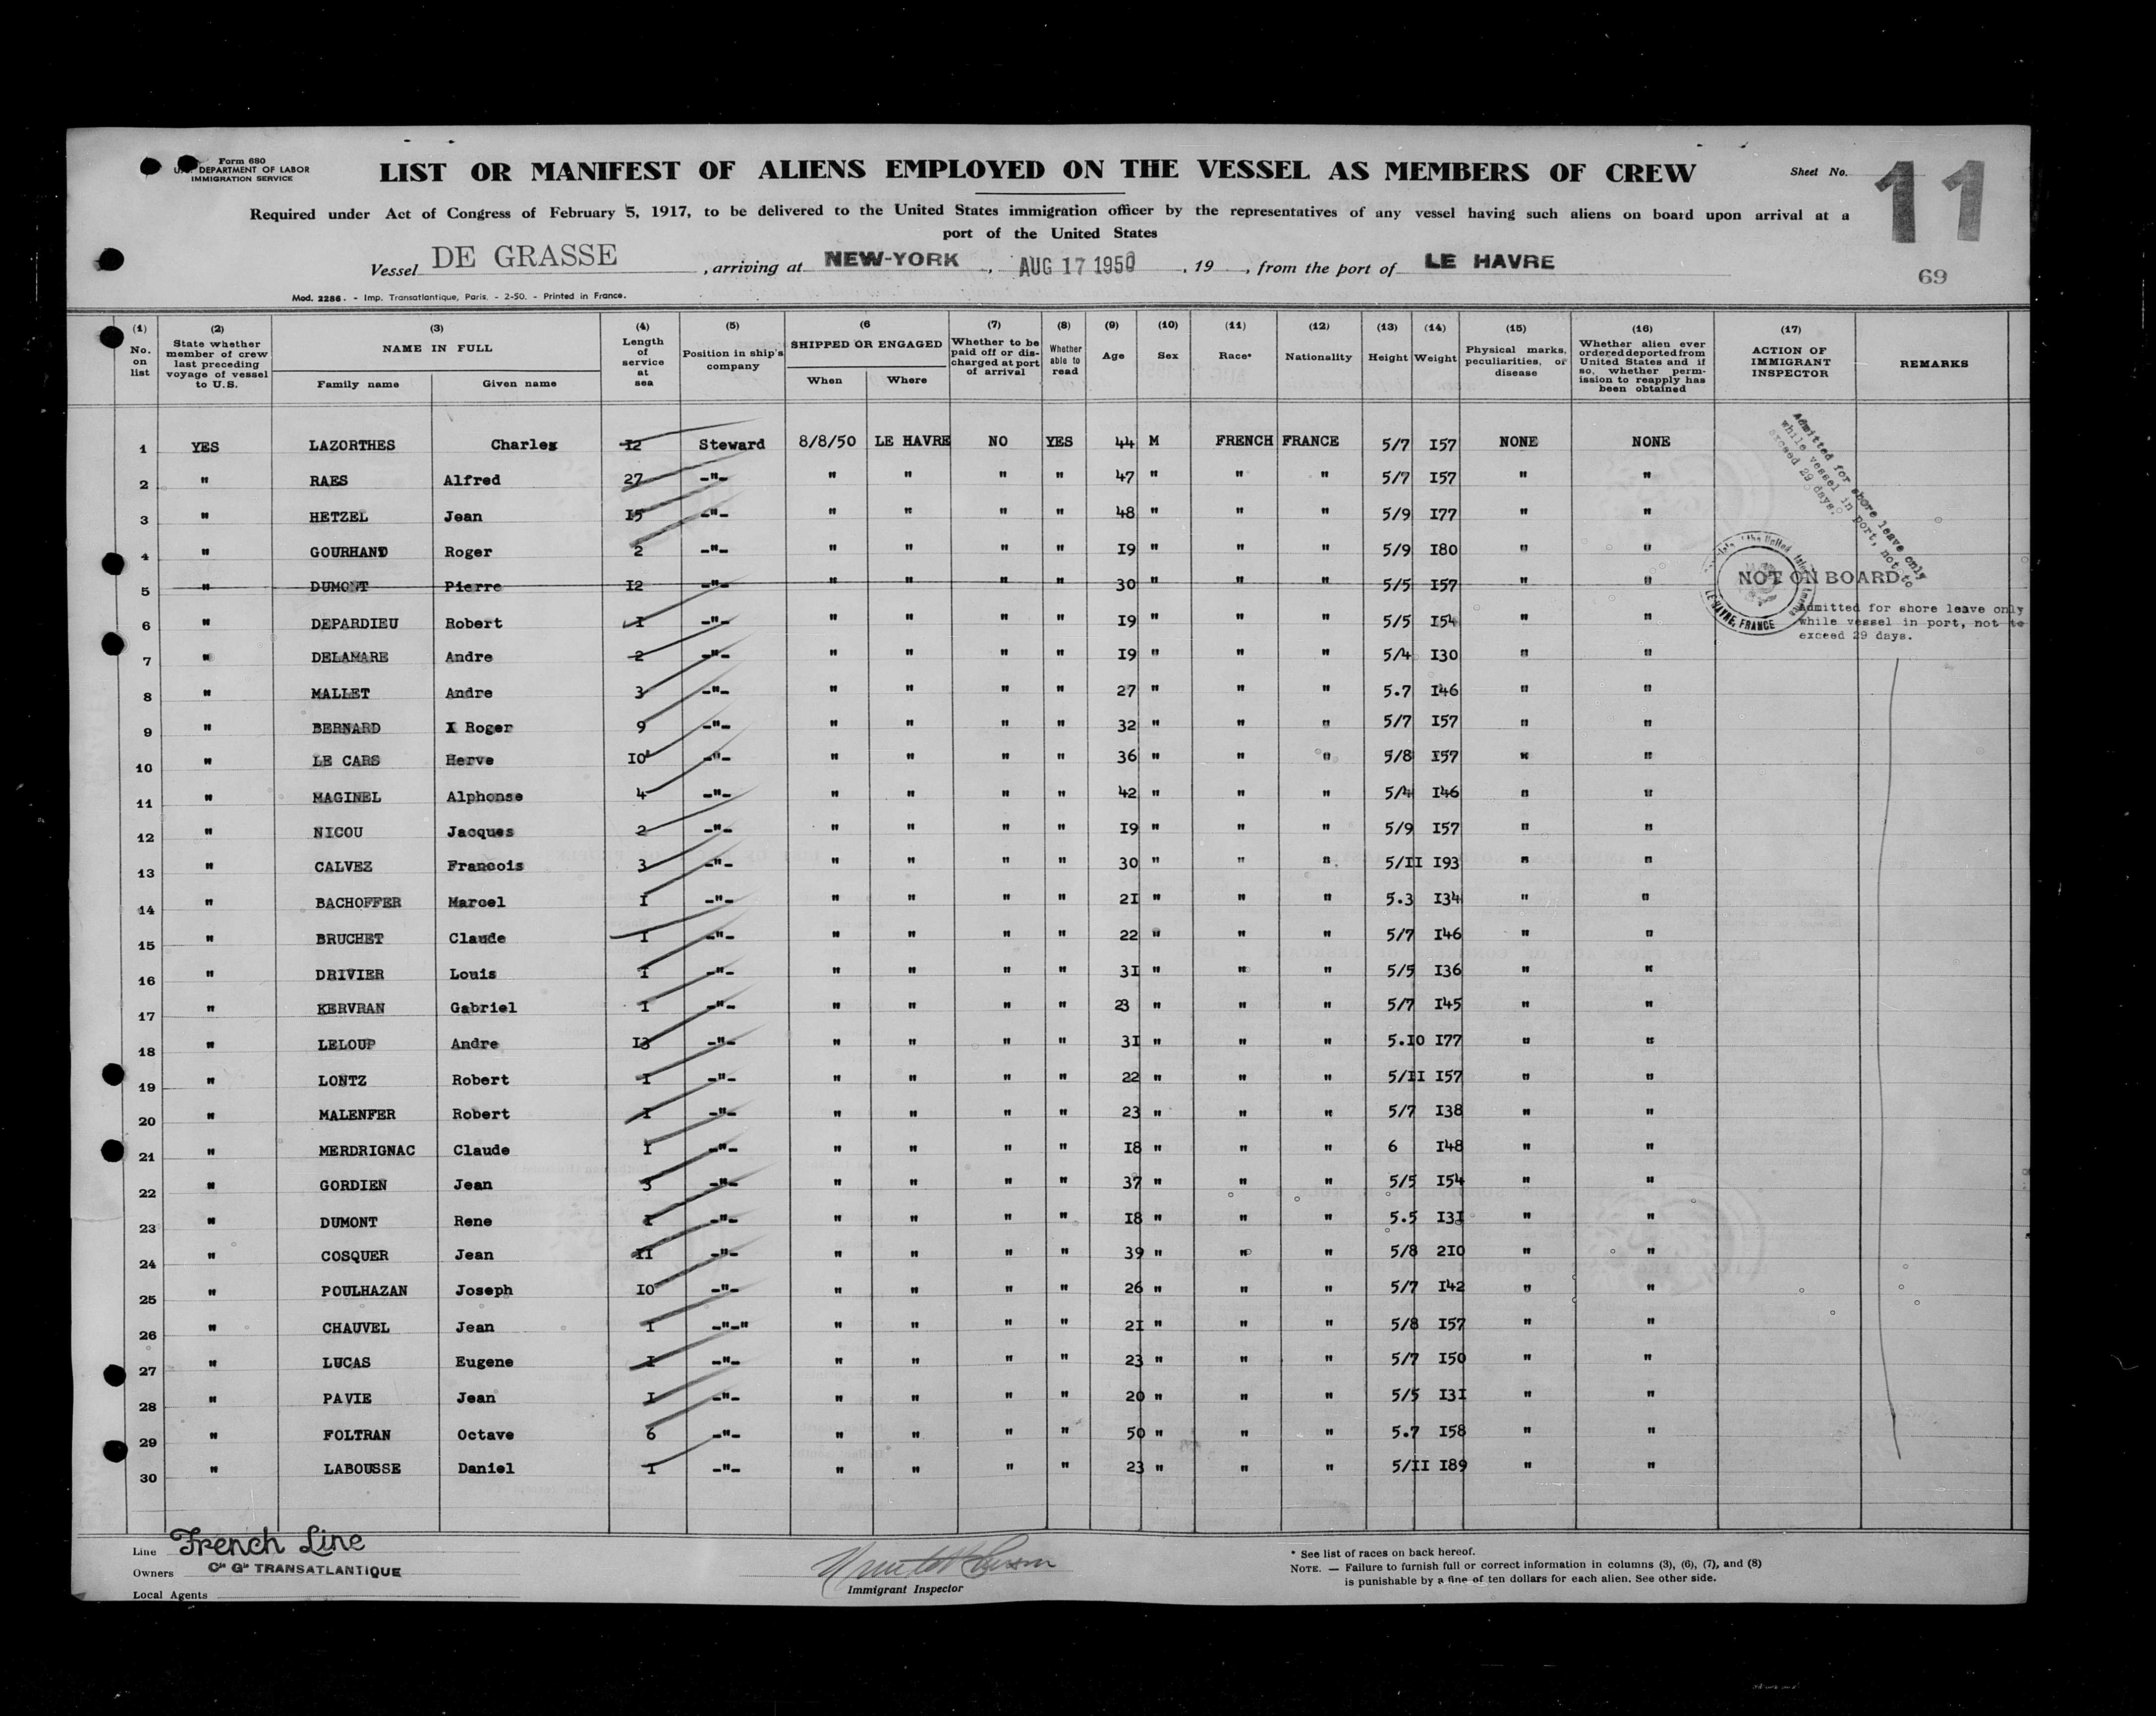 Form 680
U.S. DEPARTMENT OF LABOR
IMMIGRATION SERVICE
LIST OR MANIFEST OF ALIENS EMPLOYED ON THE VESSEL AS MEMBERS OF CREW
Sheet No. 11
Required under Act of Congress of February 5, 1917, to be delivered to the United States immigration officer by the representatives of any vessel having such aliens on board upon arrival at a
port of the United States
Vessel DE GRASSE, arriving at NEW-YORK, AUG 17 1950, 19, from the port of LE HAVRE
69
Mod. 2286. - Imp. Transatlantique, Paris. - 2-50. - Printed in France.
(1) No. on list (2) State whether member of crew last preceding voyage of vessel to U.S. (3) NAME IN FULL Family name Given name (4) Length of service at sea (5) Position in ship's company (6 SHIPPED OR ENGAGED When Where (7) Whether to be paid off or discharged at port of arrival (8) Whether able to read (9) Age (10) Sex (11) Race* (12) Nationality (13) Height (14) Weight (15) Physical marks, peculiarities, or disease (16) Whether alien ever ordered deported from United States and if so, whether permission to reapply has been obtained (17) ACTION OF IMMIGRANT INSPECTOR REMARKS
1 YES LAZORTHES Charles 12 Steward 8/8/50 LE HAVRE NO YES 44 M FRENCH FRANCE 5/7 157 NONE NONE
2 " RAES Alfred 27 -"- " " " " 47 " " " 5/7 157 " "
3 " HETZEL Jean 15 -"- " " " " 48 " " " 5/9 177 " "
4 " GOURHAND Roger 2 -"- " " " " 19 " " " 5/9 180 " "
5 " DUMONT Pierre 12 -"- " " " " 30 " " " 5/5 157 " "
6 " DEPARDIEU Robert 1 -"- " " " " 19 " " " 5/5 154 " "
7 " DELAMARE Andre 2 -"- " " " " 19 " " " 5/4 130 " "
8 " MALLET Andre 3 -"- " " " " 27 " " " 5.7 146 " "
9 " BERNARD X Roger 9 -"- " " " " 32 " " " 5/7 157 " "
10 " LE CARS Herve 10 -"- " " " " 36 " " " 5/8 157 " "
11 " MAGINEL Alphonse 4 -"- " " " " 42 " " " 5/4 146 " "
12 " NICOU Jacques 2 -"- " " " " 19 " " " 5/9 157 " "
13 " CALVEZ Francois 3 -"- " " " " 30 " " " 5/11 193 " "
14 " BACHOFFER Marcel 1 -"- " " " " 21 " " " 5.3 134 " "
15 " BRUCHET Claude 1 -"- " " " " 22 " " " 5/7 146 " "
16 " DRIVIER Louis 1 -"- " " " " 31 " " " 5/5 136 " "
17 " KERVRAN Gabriel 1 -"- " " " " 23 " " " 5/7 145 " "
18 " LELOUP Andre 13 -"- " " " " 31 " " " 5.10 177 " "
19 " LONTZ Robert 1 -"- " " " " 22 " " " 5/11 157 " "
20 " MALENFER Robert 1 -"- " " " " 23 " " " 5/7 138 " "
21 " MERDRIGNAC Claude 1 -"- " " " " 18 " " " 6 148 " "
22 " GORDIEN Jean 3 -"- " " " " 37 " " " 5/5 154 " "
23 " DUMONT Rene 1 -"- " " " " 18 " " " 5.5 131 " "
24 " COSQUER Jean 11 -"- " " " " 39 " " " 5/8 210 " "
25 " POULHAZAN Joseph 10 -"- " " " " 26 " " " 5/7 142 " "
26 " CHAUVEL Jean 1 -"-" " " " " 21 " " " 5/8 157 " "
27 " LUCAS Eugene 1 -"- " " " " 23 " " " 5/7 150 " "
28 " PAVIE Jean 1 -"- " " " " 20 " " " 5/5 131 " "
29 " FOLTRAN Octave 6 -"- " " " " 50 " " " 5.7 158 " "
30 " LABOUSSE Daniel 1 -"- " " " " 23 " " " 5/11 189 " "
Admitted for shore leave only
while vessel in port, not to
exceed 29 days.
NOT ON BOARD
LE HAVRE, FRANCE
Admitted for shore leave only
while vessel in port, not to
exceed 29 days.
Line French Line
Owners Cie Gle TRANSATLANTIQUE
Local Agents
Immigrant Inspector
* See list of races on back hereof.
NOTE. — Failure to furnish full or correct information in columns (3), (6), (7), and (8)
is punishable by a fine of ten dollars for each alien. See other side.